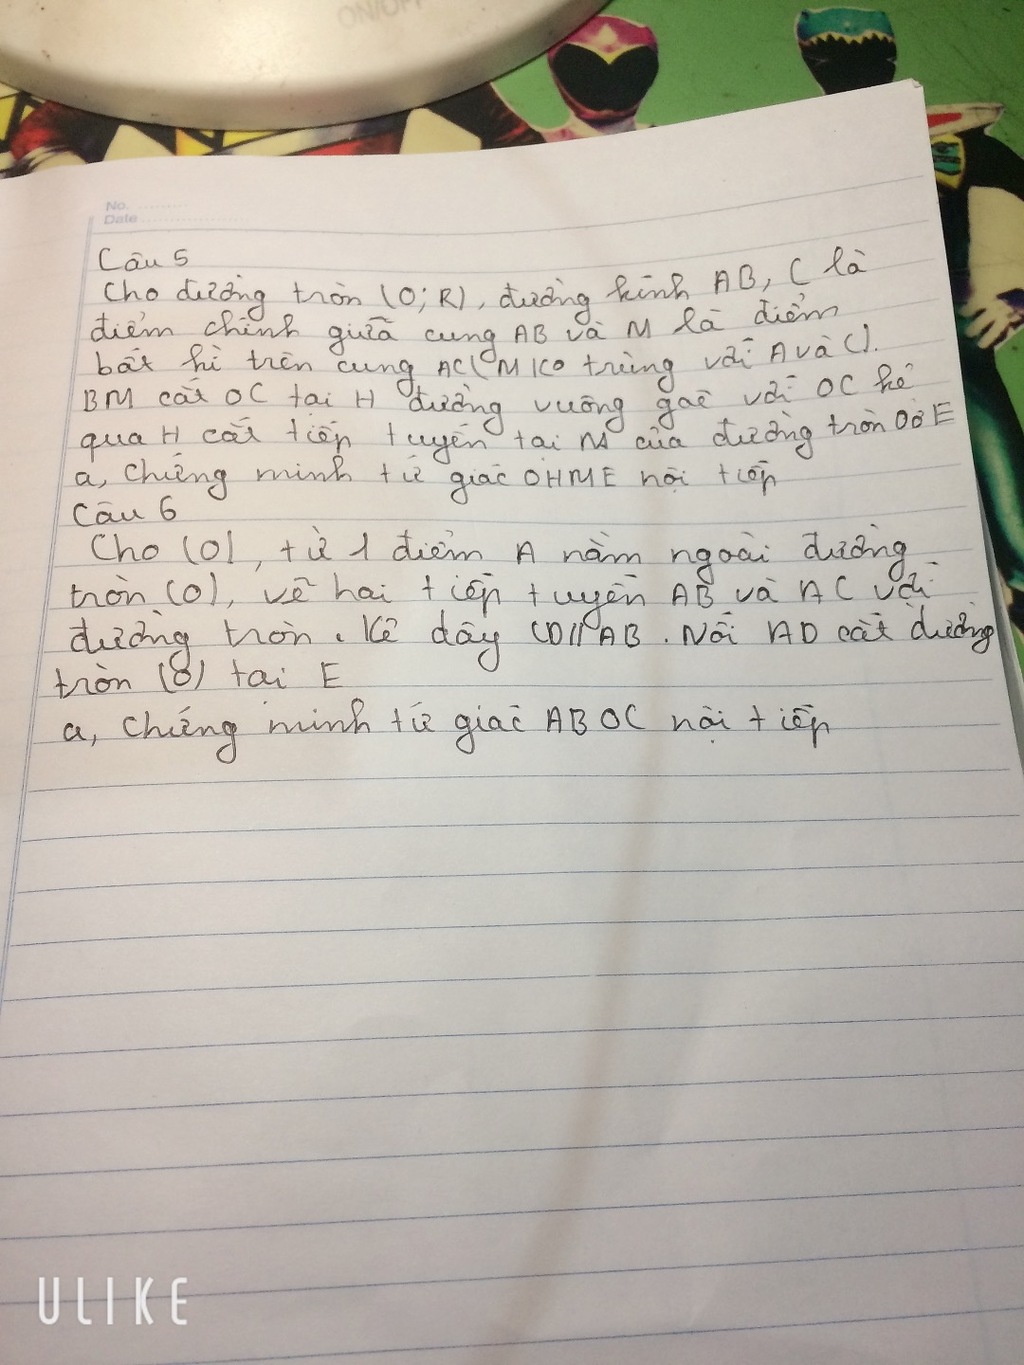 ON/OFF
No.
Date
Câu 5
Cho đường tròn (O; R), đường kính AB, C là
điểm chính giữa cung AB và M là điểm
bất kì trên cung AC (M ko trùng với A và C).
BM cắt OC tại H đường vuông góc với OC kẻ
qua H cắt tiếp tuyến tại M của đường tròn O ở E
a, Chứng minh tứ giác OHME nội tiếp
Câu 6
Cho (O), từ 1 điểm A nằm ngoài đường
tròn (O), vẽ hai tiếp tuyến AB và AC với
đường tròn. Kẻ dây CD//AB. Nối AD cắt đường
tròn (O) tại E
a, Chứng minh tứ giác ABOC nội tiếp
ULIKE